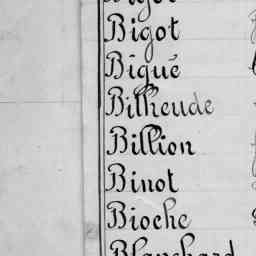 Bigot
Bigué
Bilheude
Billion
Binot
Bioche
Blanchard